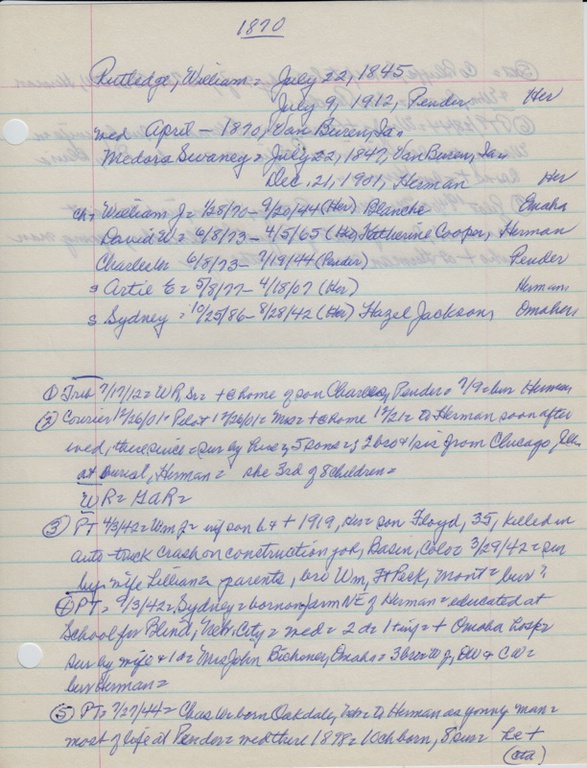 1870
Rutledge, William = July 22, 1845
July 9, 1912, Pender Her
med April - 1870, Van Buren, Ia.
Medora Swaney = July 22, 1847, Van Buren, Ia.
Dec. 21, 1901, Herman Her
Ch = William J = 1/28/70 - 9/20/44 (Her) Blanche Omaha
David W = 6/8/73 - 4/5/65 (Her) Katherine Cooper, Herman
Charles W 6/8/73 - 7/19/44 (Pender) Pender
s Artie E = 5/8/77 - 4/18/07 (Her) Herman
s Sydney = 10/25/86 - 8/28/42 (Her) Hazel Jackson, Omaha
① Trib 7/17/12 = W R Sr = + @ home of son Charles, Pender = 7/9 = bur Herman
② Courier 12/26/01 + Pilot 12/26/01 = Mrs = + @ home 12/21 = to Herman soon after
wed, there since = sur by hus = 5 sons = 2 bro & 1 sis from Chicago
at burial, Herman = she 3rd of 8 children =
WR = GAR =
③ PT 4/3/42 = Wm J = son b & + 1919, Her = son Floyd, 35, killed in
auto-truck crash on construction job, Basin, Colo = 3/29/42 = sur
by = wife Lillian = parents, bro Wm, Ft Peck, Mont = bur ?
④ PT = 9/3/42 = Sydney = born on farm NE of Herman = educated at
School for Blind, Nebr. City = med = 2 d = 1 + Omaha hosp =
sur by wife & 1 d = Mrs John Omaha = 3 bro = W J, DW & CW =
bur Herman =
⑤ PT = 7/27/44 = Chas W born Oakdale, to Herman as young man =
most of life at Pender = med there 1898 = 10 ch born, 8 sur = he +